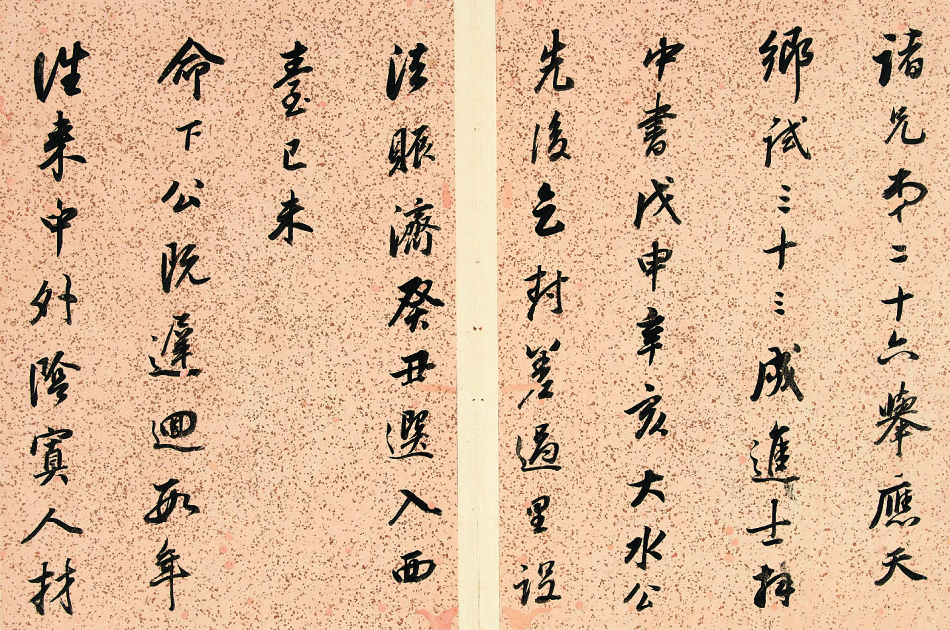 諸兄弟二十六舉應天
鄉試三十三成進士拜
中書戊申辛亥大水公
先後乞封差過里設
法賑濟癸丑選入西
臺己未
命下公既遲迴數年
往來中外陰寘人材